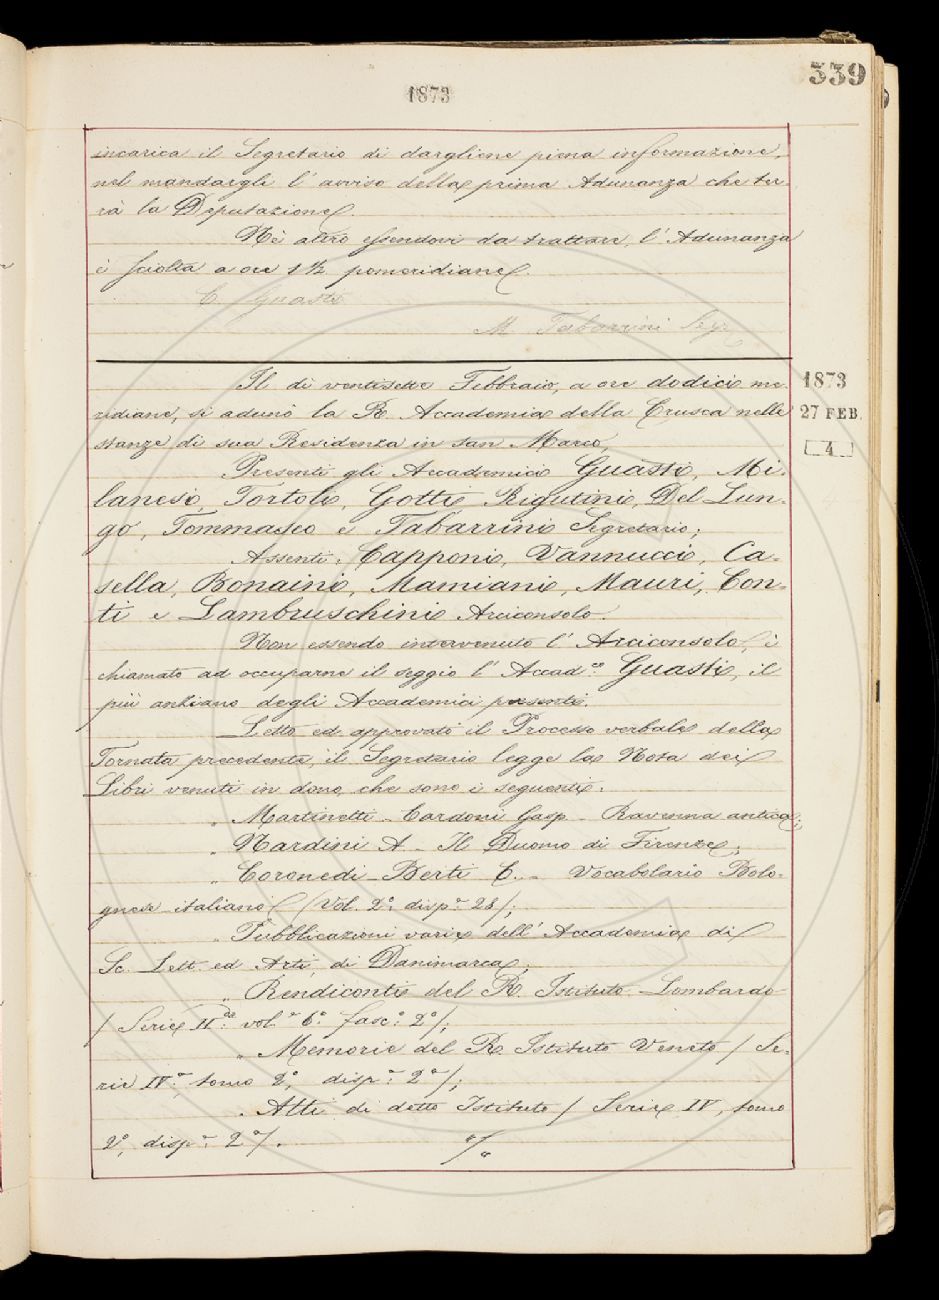 339
1873
incarica il Segretario di dargliene piena informazione,
nel mandargli l'avviso della prima Adunanza che ter-
rà la Deputazione.
Nè altro essendovi da trattare, l'Adunanza
è sciolta a ore 1 ½ pomeridiane.
C. Guasti
M. Tabarrini Seg.
1873
27 FEB.
4
Il dì ventisette Febbraio, a ore dodici me-
ridiane, si adunò la R. Accademia della Crusca nelle
stanze di sua Residenza in San Marco.
Presenti gli Accademici Guasti, Mi-
lanesi, Tortoli, Gotti, Rigutini, Del Lun-
go, Tommaseo e Tabarrini Segretario;
Assenti: Capponi, Vannucci, Ca-
sella, Bonaini, Mamiani, Mauri, Con-
ti e Lambruschini Arciconsolo.
Non essendo intervenuto l'Arciconsolo, è
chiamato ad occuparne il seggio l'Accad.co Guasti, il
più anziano degli Accademici presenti.
Letto ed approvato il Processo verbale della
Tornata precedente, il Segretario legge la Nota dei
Libri venuti in dono, che sono i seguenti:
" Martinetti - Cardoni Gasp. - Ravenna antica;
" Nardini A. - Il Duomo di Firenze;
" Coronedi - Berti C. - Vocabolario Bolo-
gnese italiano (Vol. 2º. disp.ª 28);
" Pubblicazioni varie dell'Accademia di
Sc. Lett. ed Arti, di Danimarca;
" Rendiconti del R. Istituto Lombardo
/ Serie II.da vol.º 6º. fasc.º 2º/;
" Memorie del R. Istituto Veneto / Se-
rie IV.ª, tomo 2º, disp.ª 2ª/;
" Atti di detto Istituto / Serie IV, tomo
2º, disp.ª 2ª/.
"/"